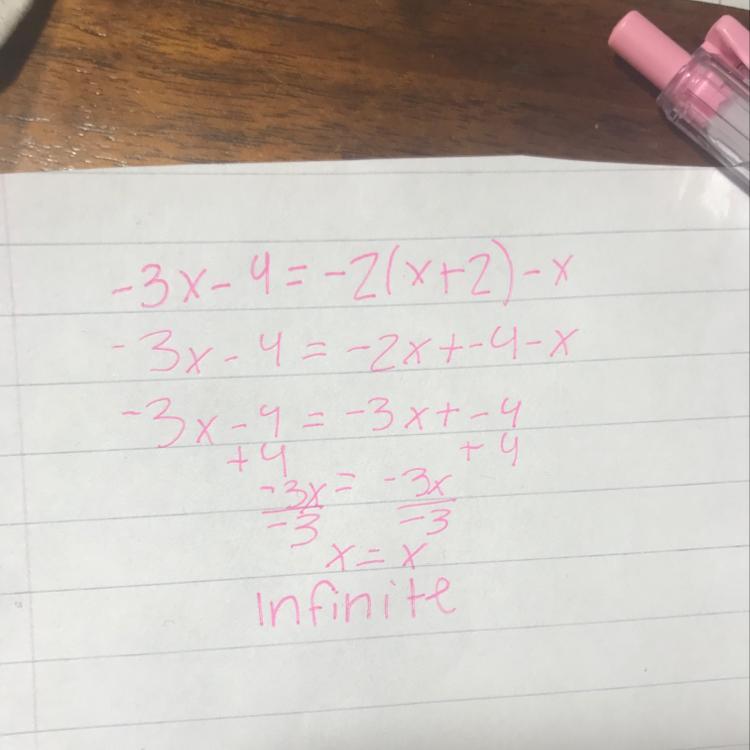 -3x-4=-2(x+2)-x
-3x-4=-2x+-4-x
-3x-4=-3x+-4
+4 +4
-3x= -3x
-3 -3
x=x
Infinite